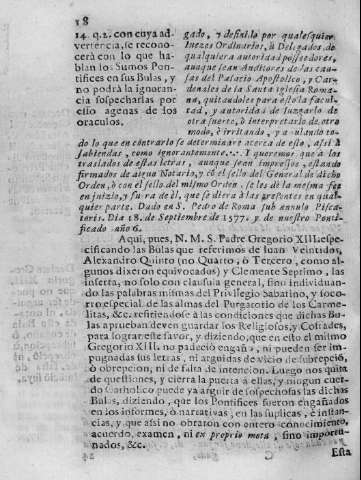 18
14. q.2. con cuya ad-
vertencia, se recono-
cerà con lo que ha-
blan los Sumos Pon-
tifices en sus Bulas, y
no podrà la ignoran-
cia sospecharlas por
esso agenas de los
oraculos.
gado, y definido por qualesquier
Iuezes Ordinarios, ù Delegados, de
qualquiera autoridad posseedores,
aunque sean Auditores de las cau-
sas del Palacio Apostolico, y Car-
denales de la Santa iglesia Roma-
na, quitandoles para esto la facul-
tad, y autoridad de Iuzgarlo de
otra suerte, ò interpretarlo de otro
modo, è irritando, y anulando to-
do lo que en contrario se determinare acerca de esto, assi à
sabiendas, como ignorantemente. Y queremos que a los
traslados de estas letras, aunque sean impressos, estando
firmados de algun Notario, y cõ el sello del General de dicho
Orden, ò con el sello del mismo Orden, se les dè la mesma fee
en juizio, y fuera de èl, que se diera à las presentes en qual-
quier parte. Dado en S. Pedro de Roma sub annulo Pisca-
toris. Dia 18. de Septiembre de 1577. y de nuestro Ponti-
ficado año 6.
Aqui, pues, N. M. S. Padre Gregorio XIII. es-
pecificando las Bulas que referimos de Iuan Veintidos,
Alexandro Quinto (no Quarto, ò Tercero, como al-
gunos dixeron equivocados) y Clemente Septimo, las
inserta, no solo con clausula general, sino individuan-
do las palabras mismas del Privilegio Sabatino, y soco-
rro especial de las almas del Purgatorio de los Carme-
litas, &c. refiriendose à las condiciones que dichas Bu-
las aprueban deven guardar los Religiosos, y Cofrades,
para lograr este favor, y diziendo, que en esto el mismo
Gregorio XIII. no padeciò engaño, ni pueden ser im-
pugnadas sus letras, ni arguidas de vicio de subrepciõ,
ò obrepcion, ni de falta de intencion. Luego nos quita
de questiones, y cierra la puerta à ellas, y ningun cuer-
do Catholico puede ya arguir de sospechosas las dichas
Bulas, diziendo, que los Pontifices fueron engañados
en los informes, ò narrativas, en las suplicas, è instan-
cias, y que assi no obraron con entero conocimiento,
acuerdo, examen, ni ex proprio motu, sino importu-
nados, &c.
Esta